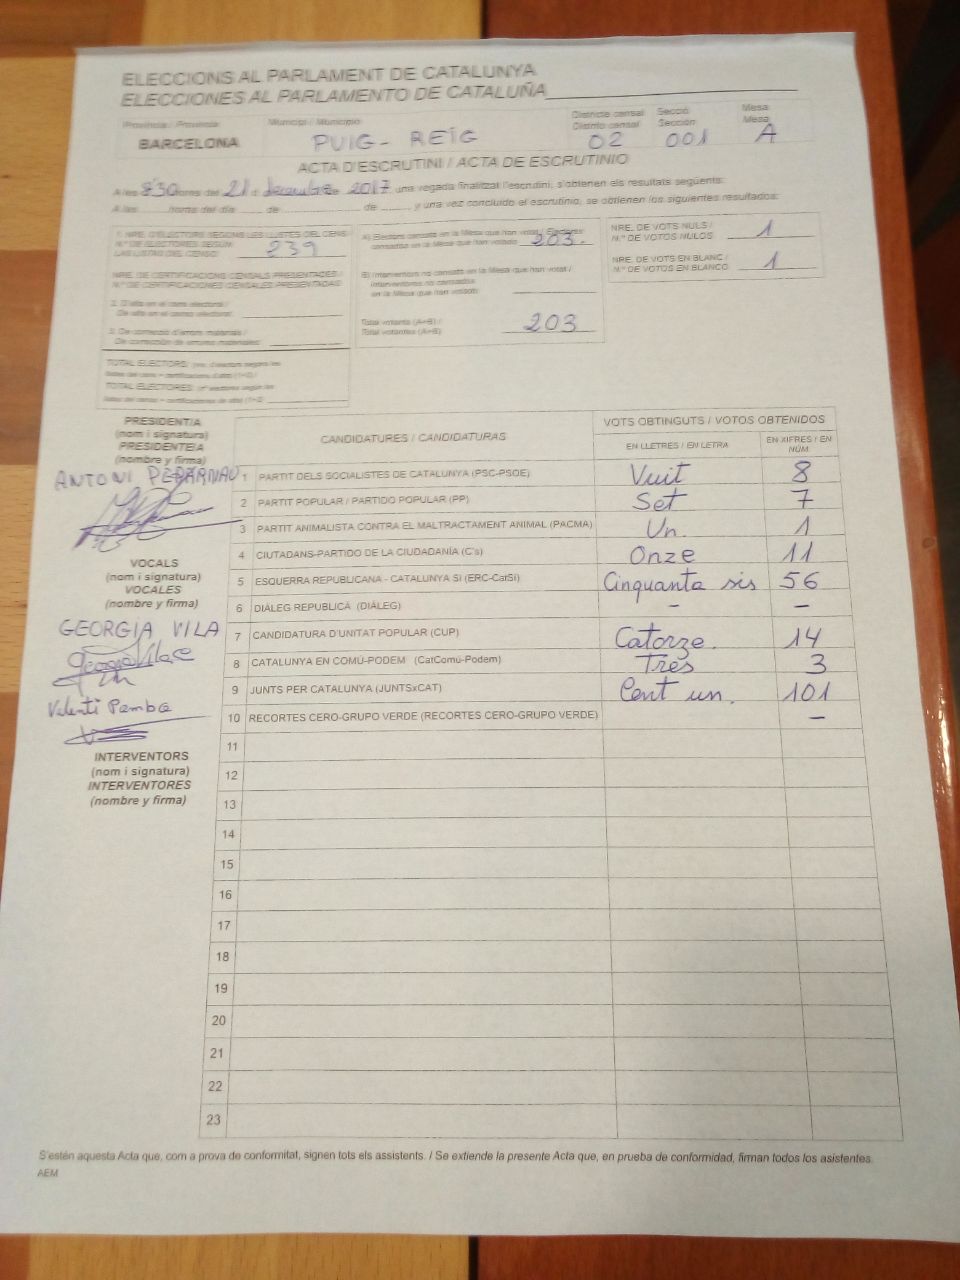 ELECCIONS AL PARLAMENT DE CATALUNYA
ELECCIONES AL PARLAMENTO DE CATALUÑA
Província / Provincia Municipi / Municipio Districte censal Secció Mesa
Distrito censal Sección Mesa
BARCELONA PUIG-REIG 02 001 A
ACTA D'ESCRUTINI / ACTA DE ESCRUTINIO
A les 8'30 hores del 21 d desembre de 2017 una vegada finalitzat l'escrutini, s'obtenen els resultats següents:
A las horas del día de de y una vez concluido el escrutinio, se obtienen los siguientes resultados:
1. NRE. D'ELECTORS SEGONS LES LLISTES DEL CENS
N.º DE ELECTORES SEGÚN
LAS LISTAS DEL CENSO: 239
NRE. DE CERTIFICACIONS CENSALS PRESENTADES /
N.º DE CERTIFICACIONES CENSALES PRESENTADAS
2. D'alta en el cens electoral /
De alta en el censo electoral:
3. De correcció d'errors materials /
De corrección de errores materiales:
TOTAL ELECTORS:
TOTAL ELECTORES:
A) Electors censats en la Mesa que han votat / Electores
censados en la Mesa que han votado 203.
B) Interventors no censats en la Mesa que han votat /
Interventores no censados
en la Mesa que han votado
Total votants (A+B) /
Total votantes (A+B) 203
NRE. DE VOTS NULS /
N.º DE VOTOS NULOS 1
NRE. DE VOTS EN BLANC /
N.º DE VOTOS EN BLANCO 1
PRESIDENT/A
(nom i signatura)
PRESIDENTE/A
(nombre y firma)
VOCALS
(nom i signatura)
VOCALES
(nombre y firma)
GEORGIA VILA
INTERVENTORS
(nom i signatura)
INTERVENTORES
(nombre y firma)
CANDIDATURES / CANDIDATURAS VOTS OBTINGUTS / VOTOS OBTENIDOS
EN LLETRES / EN LETRA EN XIFRES / EN NÚM.
1 PARTIT DELS SOCIALISTES DE CATALUNYA (PSC-PSOE) Vuit 8
2 PARTIT POPULAR / PARTIDO POPULAR (PP) Set 7
3 PARTIT ANIMALISTA CONTRA EL MALTRACTAMENT ANIMAL (PACMA) Un. 1
4 CIUTADANS-PARTIDO DE LA CIUDADANÍA (C's) Onze 11
5 ESQUERRA REPUBLICANA - CATALUNYA SÍ (ERC-CatSí) Cinquanta sis 56
6 DIÀLEG REPUBLICÀ (DIÀLEG) - -
7 CANDIDATURA D'UNITAT POPULAR (CUP) Catorze. 14
8 CATALUNYA EN COMÚ-PODEM (CatComú-Podem) Tres 3
9 JUNTS PER CATALUNYA (JUNTSxCAT) Cent un. 101
10 RECORTES CERO-GRUPO VERDE (RECORTES CERO-GRUPO VERDE) -
11
12
13
14
15
16
17
18
19
20
21
22
23
S'estén aquesta Acta que, com a prova de conformitat, signen tots els assistents. / Se extiende la presente Acta que, en prueba de conformidad, firman todos los asistentes.
AEM